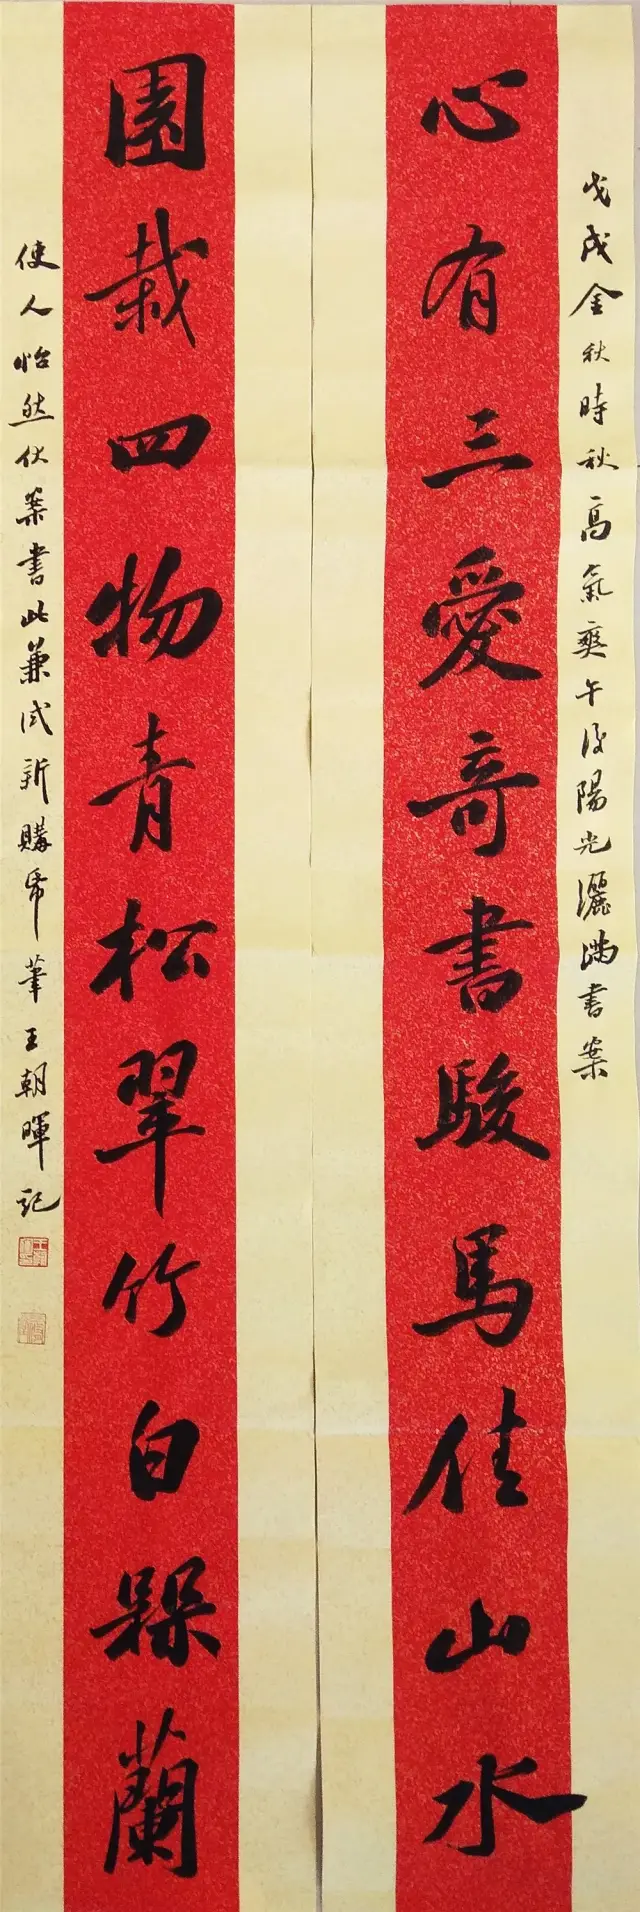 戊戌金秋時秋高氣爽午後陽光灑滿書案
心有三愛奇書駿馬佳山水
園栽四物青松翠竹白槑蘭
使人怡然伏案書此兼試新購帋筆王朝暉記